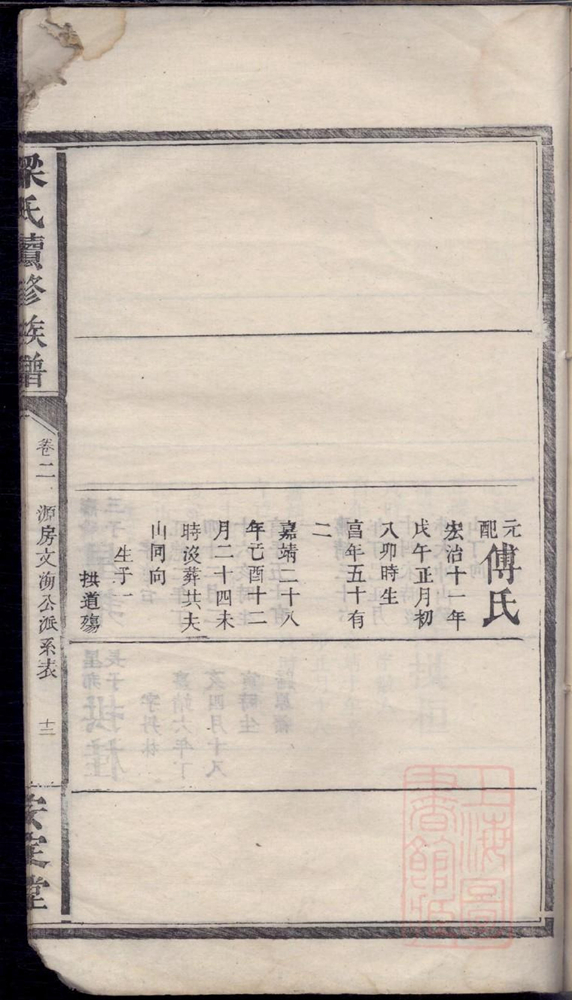 元配傅氏
宏治十一年
戊午正月初
八卯時生
富年五十有
二
嘉靖二十八
年己酉十二
月二十四未
時没葬共夫
山同向
生子一
拱道殤
梁氏續修族譜
卷二
源房文海公派系表
十二
安定堂
上海圖書館藏